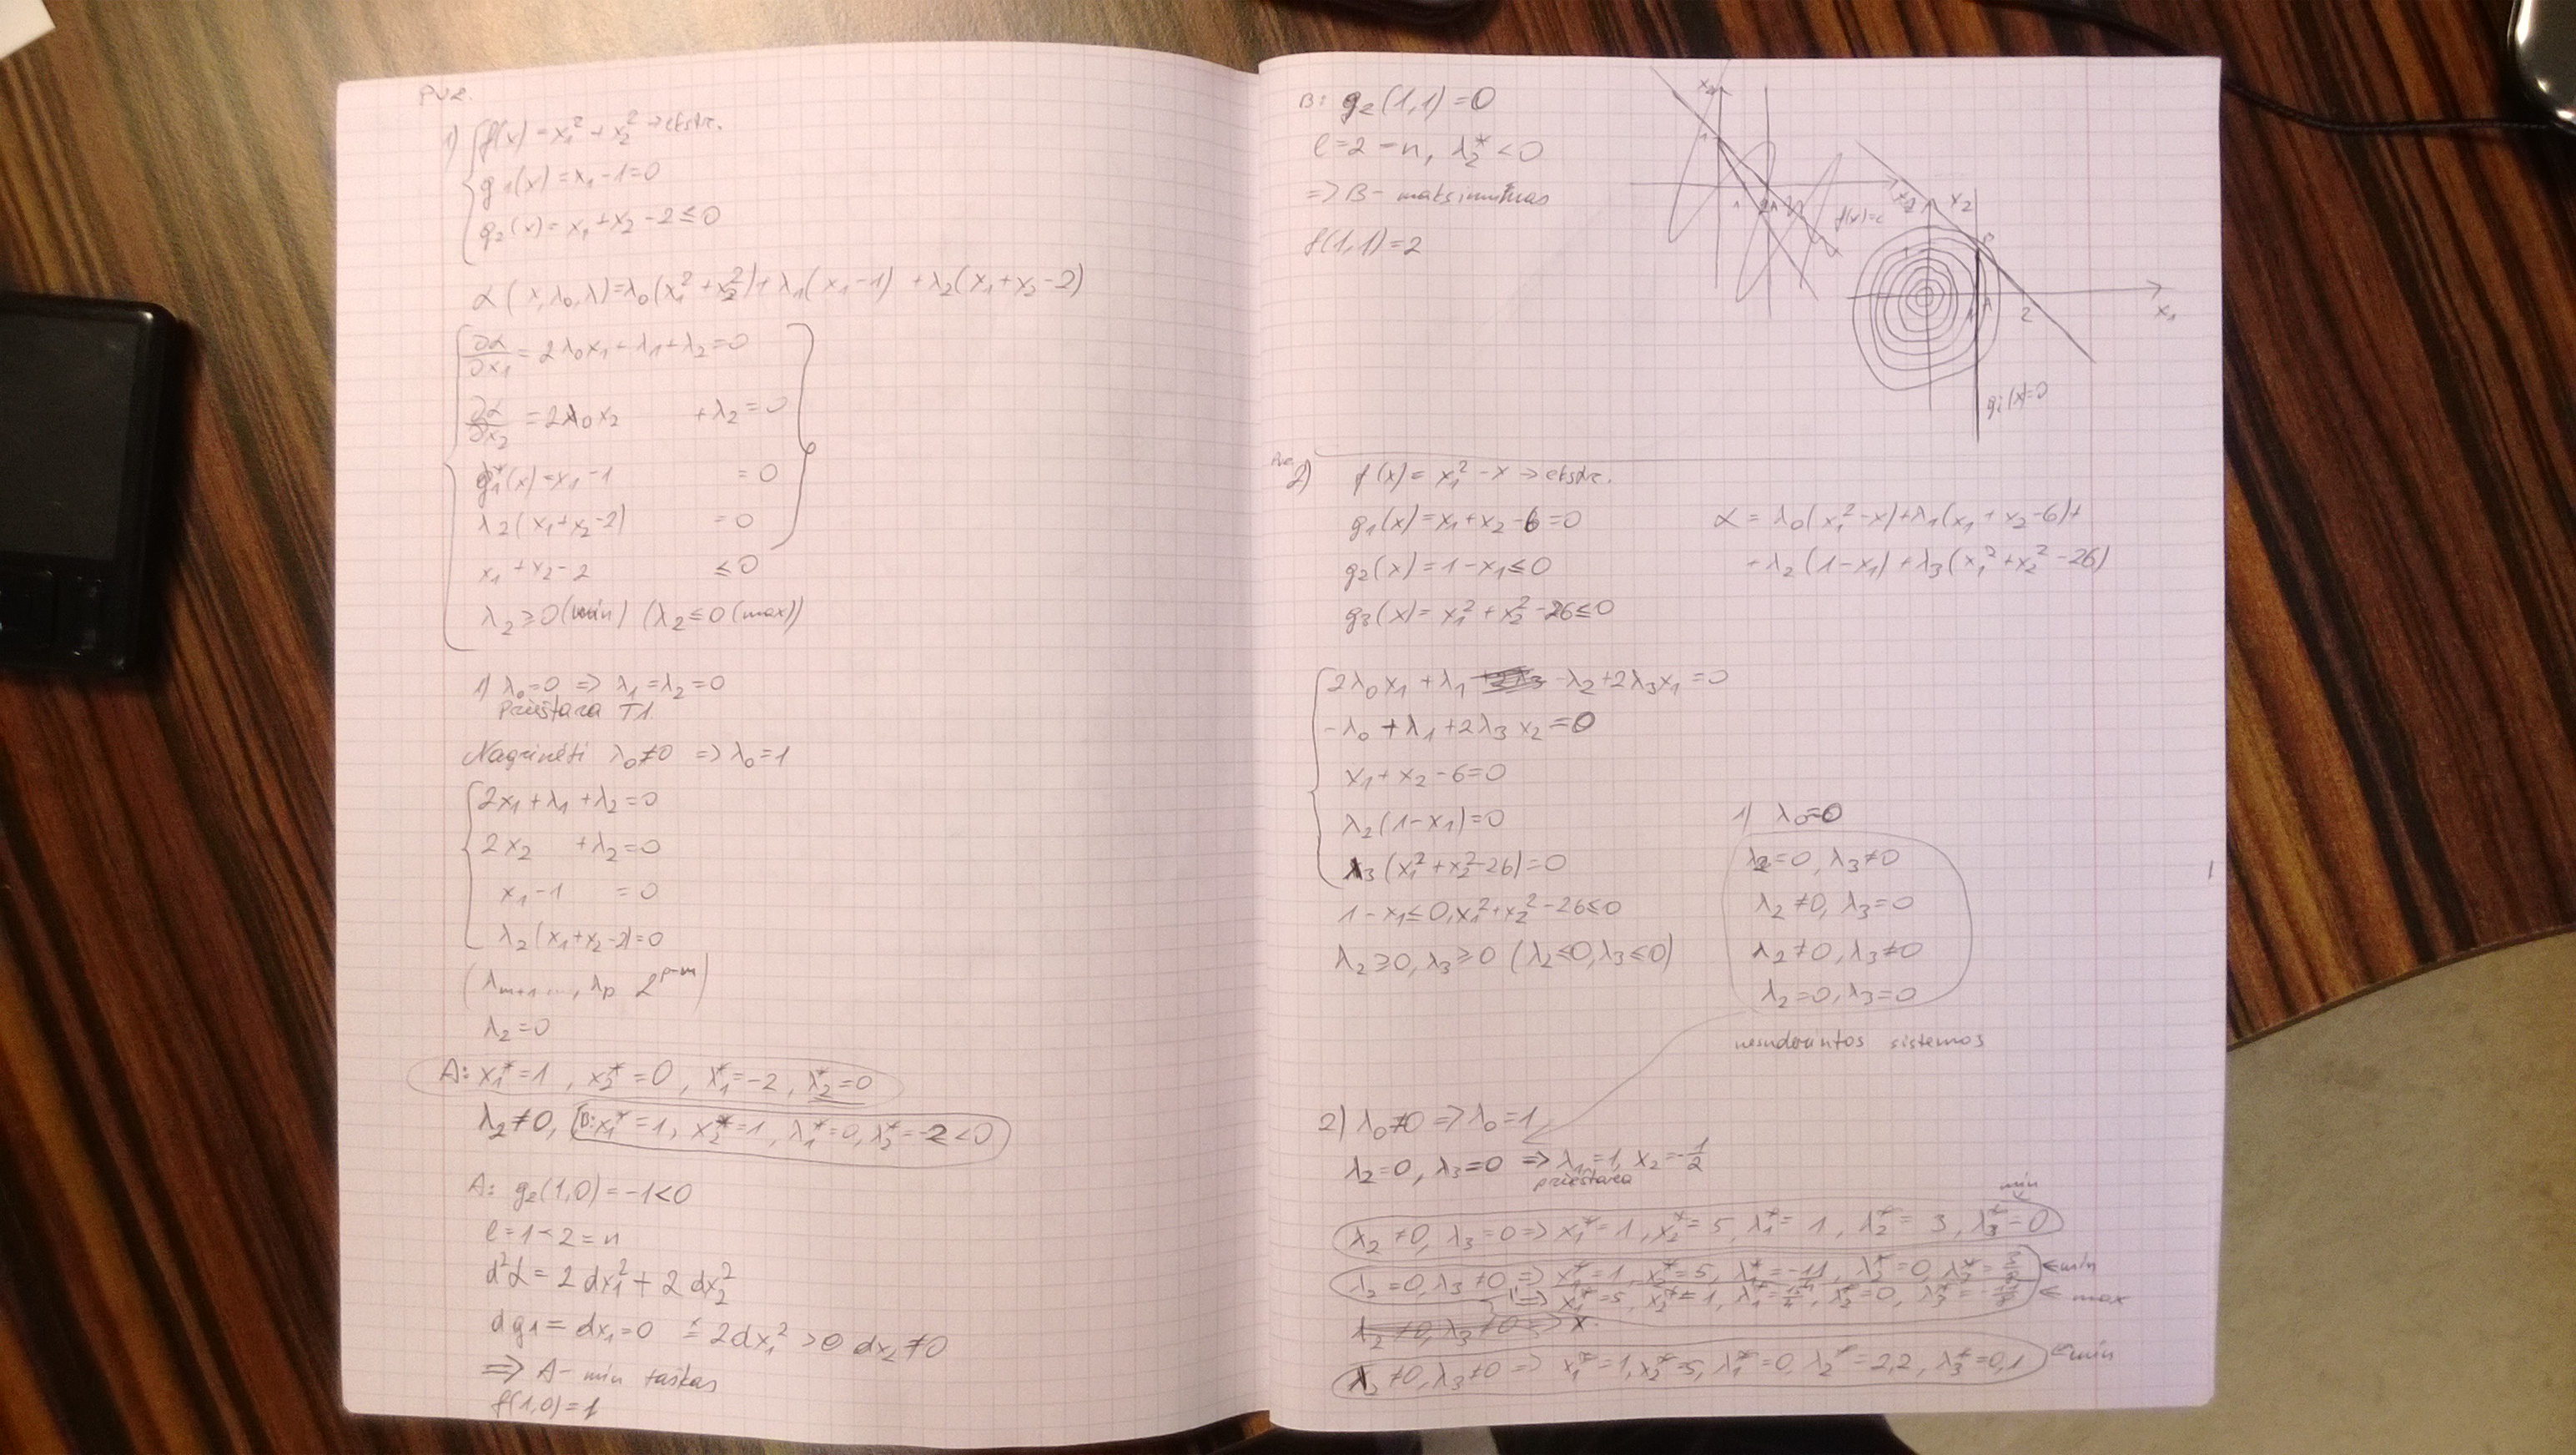 Pvz.
1) f(x) = x₁² + x₂² → ekstr.
g₁(x) = x₁ - 1 = 0
g₂(x) = x₁ + x₂ - 2 ≤ 0
α(x, λ₀, λ) = λ₀(x₁² + x₂²) + λ₁(x₁ - 1) + λ₂(x₁ + x₂ - 2)
∂α/∂x₁ = 2λ₀x₁ + λ₁ + λ₂ = 0
∂α/∂x₂ = 2λ₀x₂ + λ₂ = 0
g₁(x) = x₁ - 1 = 0
λ₂(x₁ + x₂ - 2) = 0
x₁ + x₂ - 2 ≤ 0
λ₂ ≥ 0 (min) (λ₂ ≤ 0 (max))
1) λ₀ = 0 => λ₁ = λ₂ = 0
Prieštara T1.
Nagrinėti λ₀ ≠ 0 => λ₀ = 1
2x₁ + λ₁ + λ₂ = 0
2x₂ + λ₂ = 0
x₁ - 1 = 0
λ₂(x₁ + x₂ - 2) = 0
(λₘ₊₁ ..., λₚ 2^(p-m))
λ₂ = 0
A: x₁* = 1, x₂* = 0, λ₁* = -2, λ₂* = 0
λ₂ ≠ 0, B: x₁* = 1, x₂* = 1, λ₁* = 0, λ₂* = -2 < 0
A: g₂(1,0) = -1 < 0
l = 1 < 2 = n
d²α = 2dx₁² + 2dx₂²
dg₁ = dx₁ = 0 2dx₁² > 0 dx₂ ≠ 0
=> A - min taškas
f(1,0) = 1
B: g₂(1,1) = 0
l = 2 = n, λ₂* < 0
=> B - maksimumas
f(1,1) = 2
x₂
1
1
f(x)=c
x₂
B
A
1
2
x₁
g₁(x)=0
Pvz.
2) f(x) = x₁² - x → ekstr.
g₁(x) = x₁ + x₂ - 6 = 0
g₂(x) = 1 - x₁ ≤ 0
g₃(x) = x₁² + x₂² - 26 ≤ 0
α = λ₀(x₁² - x) + λ₁(x₁ + x₂ - 6) +
+ λ₂(1 - x₁) + λ₃(x₁² + x₂² - 26)
2λ₀x₁ + λ₁ - λ₂ + 2λ₃x₁ = 0
-λ₀ + λ₁ + 2λ₃x₂ = 0
x₁ + x₂ - 6 = 0
λ₂(1 - x₁) = 0
λ₃(x₁² + x₂² - 26) = 0
1 - x₁ ≤ 0, x₁² + x₂² - 26 ≤ 0
λ₂ ≥ 0, λ₃ ≥ 0 (λ₂ ≤ 0, λ₃ ≤ 0)
1) λ₀ = 0
λ₂ = 0, λ₃ ≠ 0
λ₂ ≠ 0, λ₃ = 0
λ₂ ≠ 0, λ₃ ≠ 0
λ₂ = 0, λ₃ = 0
nesuderintos sistemos
2) λ₀ ≠ 0 => λ₀ = 1
λ₂ = 0, λ₃ = 0 => λ₁ = 1, x₂ = -1/2
prieštara
min
λ₂ ≠ 0, λ₃ = 0 => x₁* = 1, x₂* = 5, λ₁* = 1, λ₂* = 3, λ₃* = 0
λ₂ = 0, λ₃ ≠ 0 => x₁* = 1, x₂* = 5, λ₁* = -11, λ₂* = 0 ← min
=> x₁* = 5, x₂* = 1, λ₂* = 0 ← max
λ₂ ≠ 0, λ₃ ≠ 0 => x
λ₂ ≠ 0, λ₃ ≠ 0 => x₁* = 1, x₂* = 5, λ₁* = 0, λ₂* = 2,2, λ₃* = 0,1 ← min